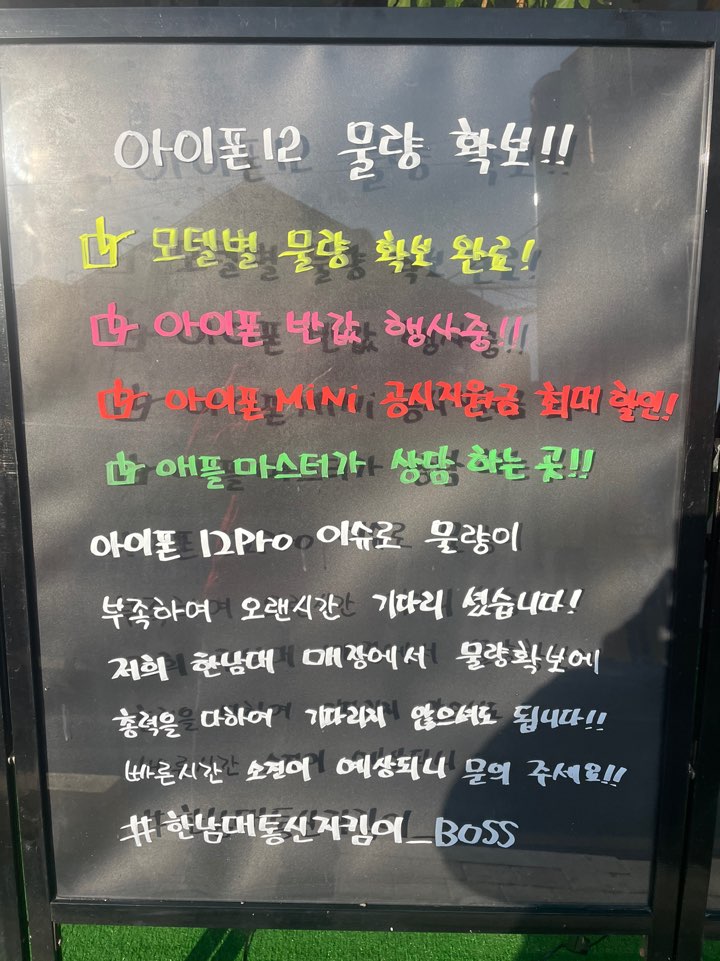 아이폰12 물량 확보!!
모델별 물량 확보 완료!
아이폰 반값 행사중!!
아이폰 MiNi 공시지원금 최대 할인!
애플 마스터가 상담 하는 곳!!
아이폰 12Pro 이슈로 물량이
부족하여 오랜시간 기다리 셨습니다!
저희 한남대 매장에서 물량확보에
총력을 다하여 기다리지 않으셔도 됩니다!!
빠른시간 소진이 예상되니 문의 주세요!!
#한남대통신지킴이_BOSS